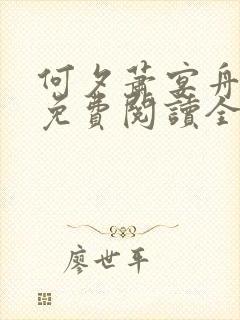 何夕蕭宴舟
免費閱讀全
廖世平